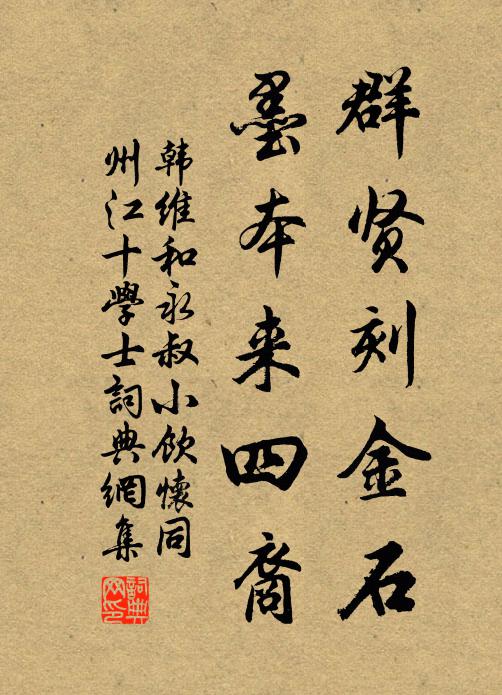 群贤刻金石
墨本来四裔
韩维和永叔小饮怀同
州江十學士詞典網集
詞典网印